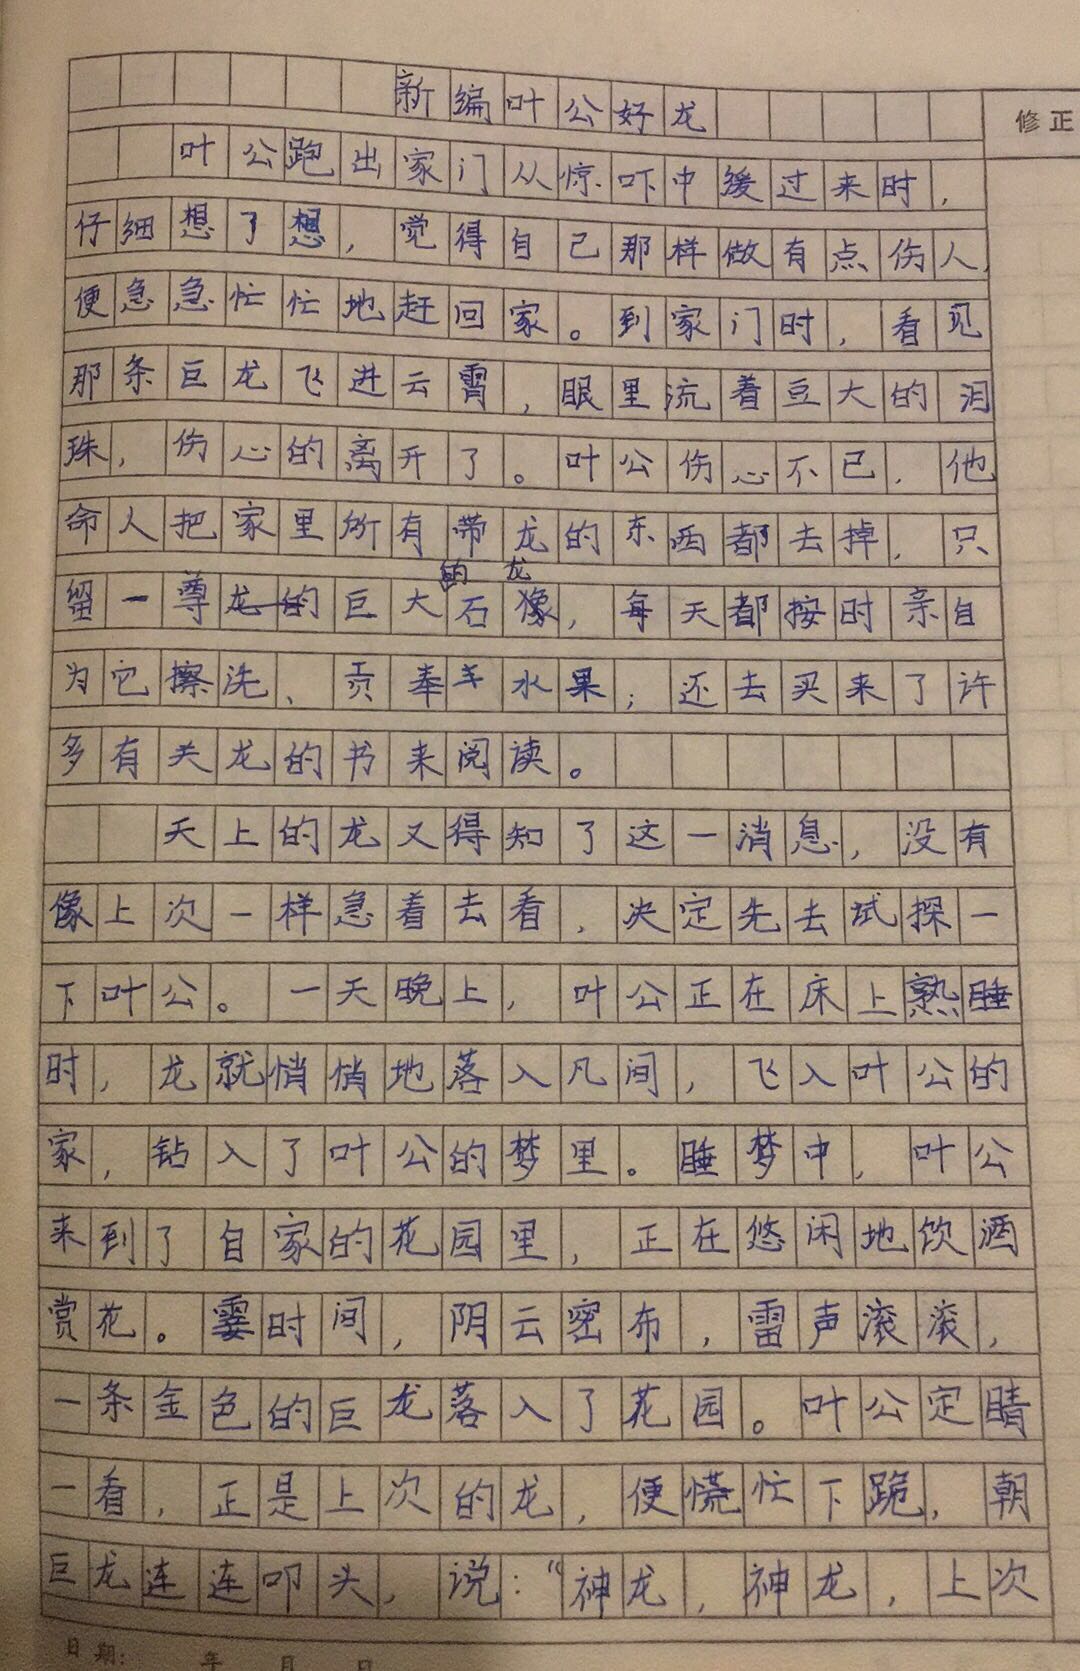 新编叶公好龙
修正
叶公跑出家门从惊吓中缓过来时，
仔细想了想，觉得自己那样做有点伤人，
便急急忙忙地赶回家。到家门时，看见
那条巨龙飞进云霄，眼里流着豆大的泪
珠，伤心的离开了。叶公伤心不已，他
命人把家里所有带龙的东西都去掉，只
的 龙
留一尊龙的巨大石像，每天都按时亲自
为它擦洗、贡奉羊水果；还去买来了许
多有关龙的书来阅读。
天上的龙又得知了这一消息，没有
像上次一样急着去看，决定先去试探一
下叶公。一天晚上，叶公正在床上熟睡
时，龙就悄悄地落入凡间，飞入叶公的
家，钻入了叶公的梦里。睡梦中，叶公
来到了自家的花园里，正在悠闲地饮酒
赏花。霎时间，阴云密布，雷声滚滚，
一条金色的巨龙落入了花园。叶公定睛
一看，正是上次的龙，便慌忙下跪，朝
巨龙连连叩头，说：“神龙，神龙，上次
日期： 年 月 日